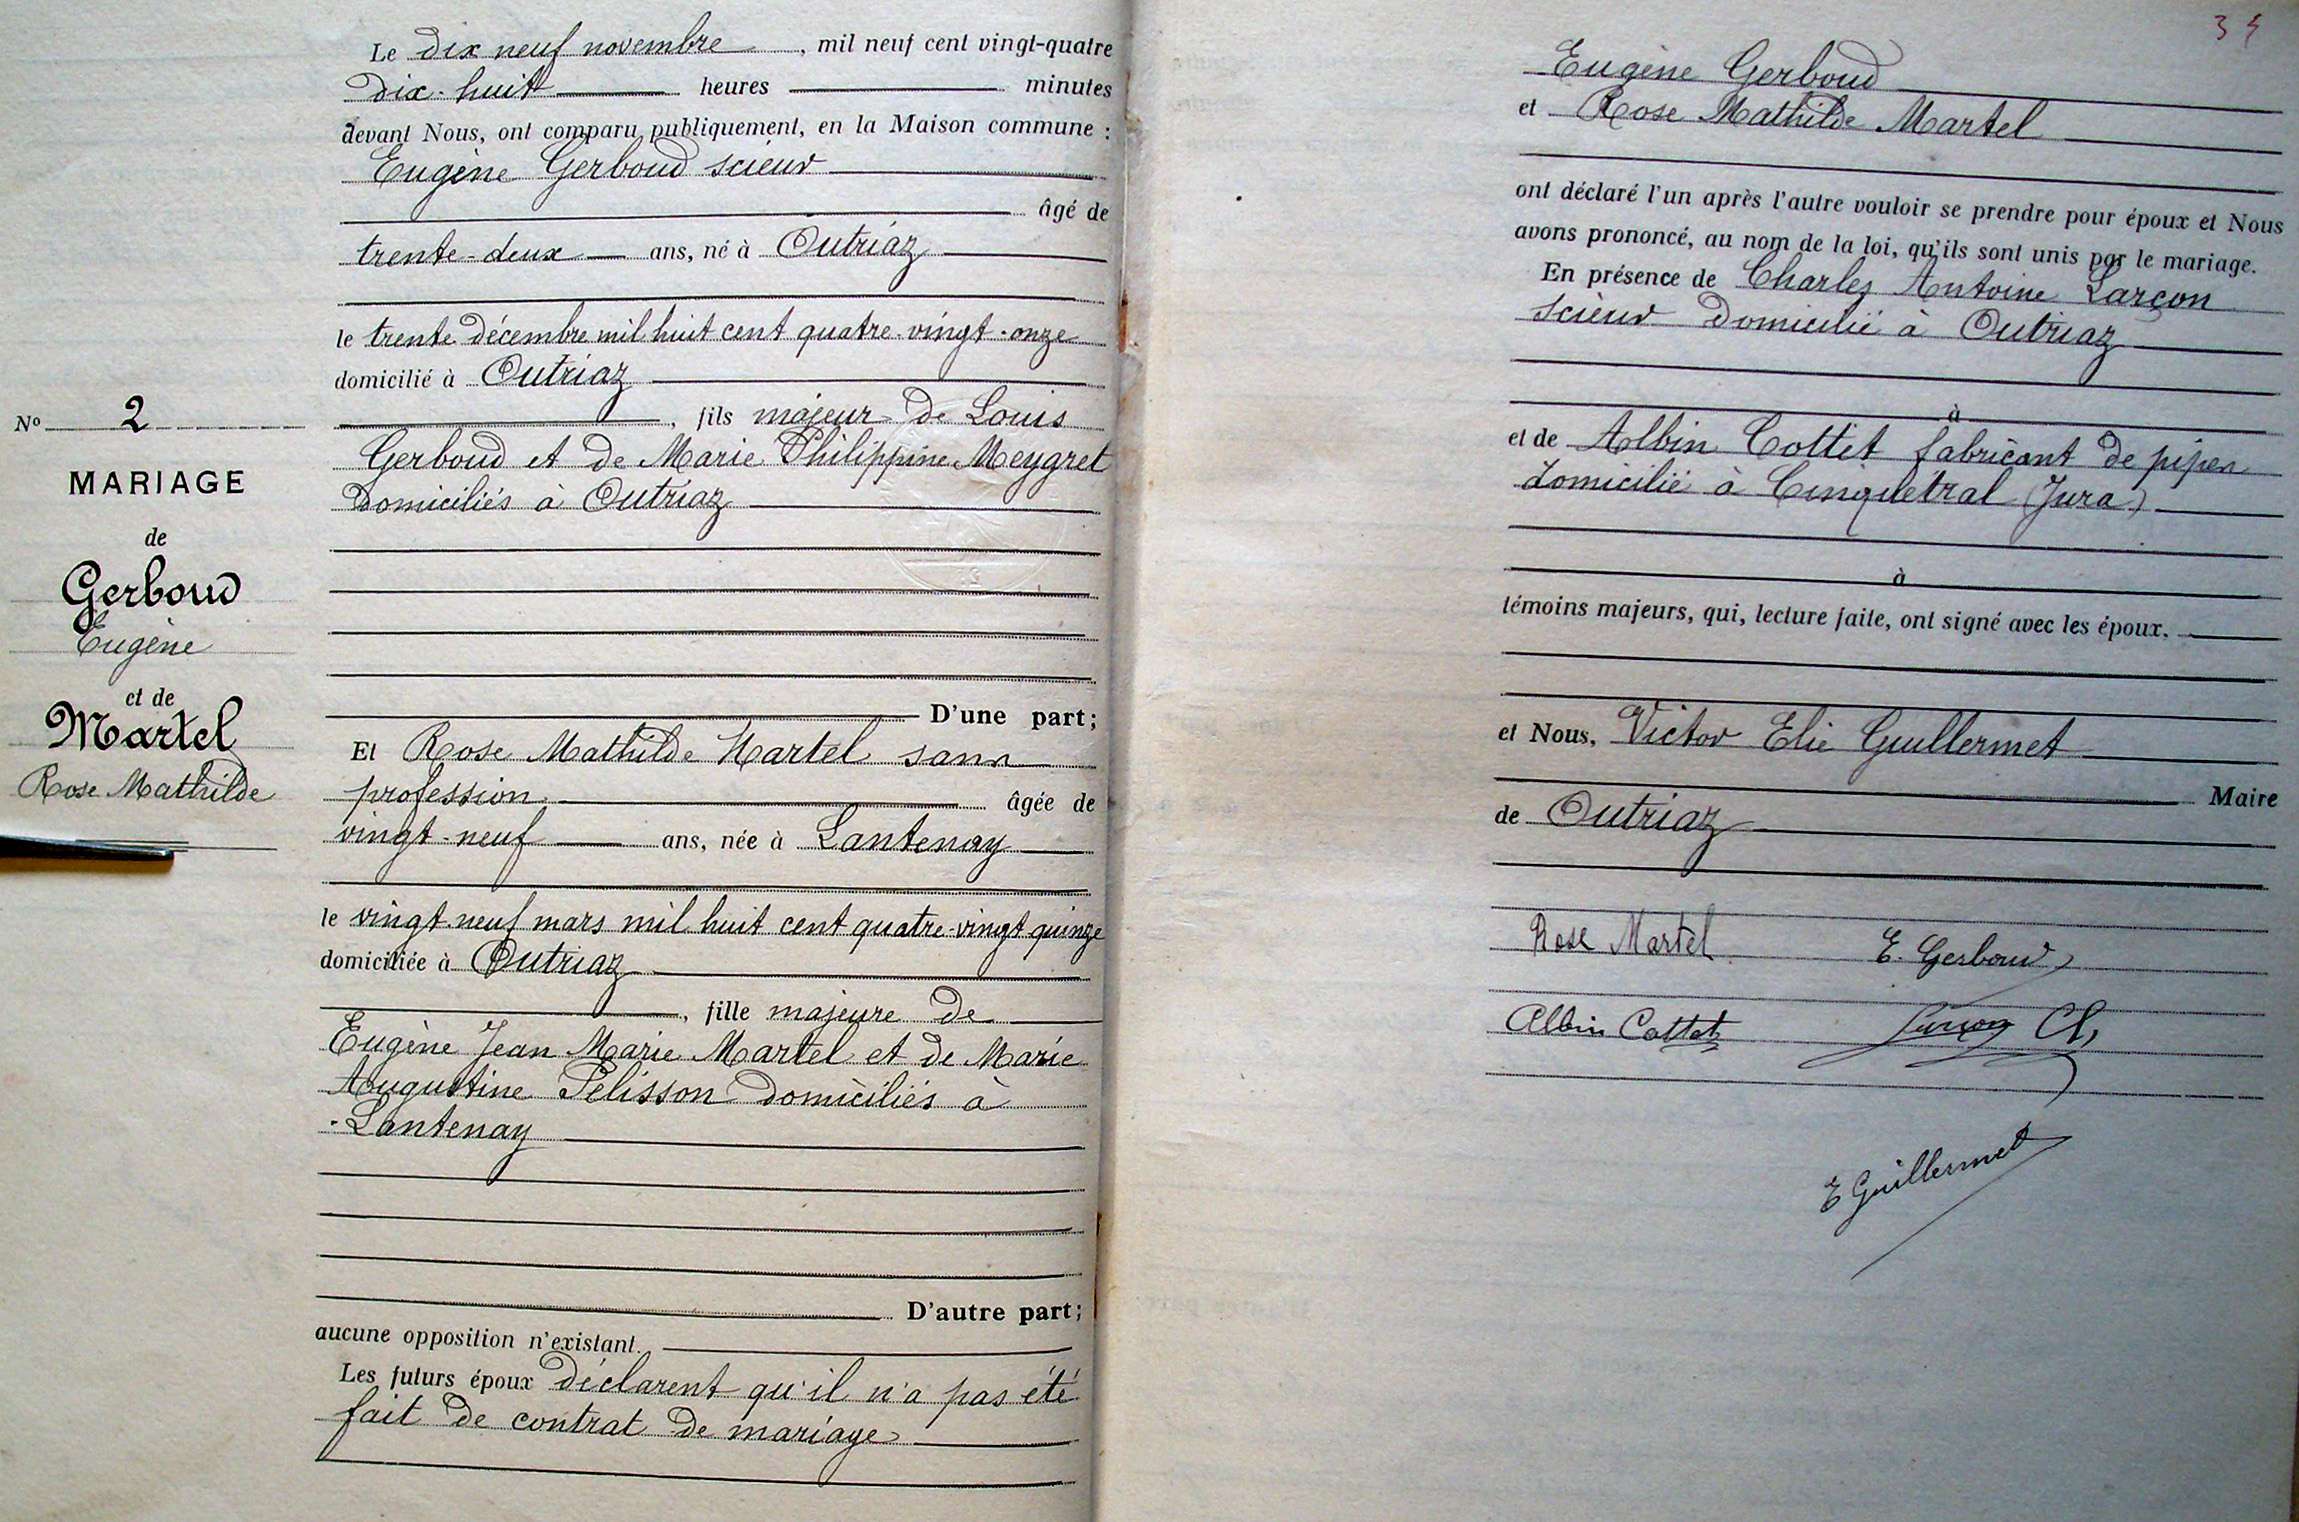 Le dix neuf novembre, mil neuf cent vingt-quatre
dix-huit heures minutes
devant Nous, ont comparu publiquement, en la Maison commune :
Eugène Gerboud scieur
âgé de
trente-deux ans, né à Outriaz
le trente décembre mil huit cent quatre-vingt-onze
domicilié à Outriaz
, fils majeur de Louis
Gerboud et de Marie Philippine Meygret
domiciliés à Outriaz
D'une part;
Et Rose Mathilde Martel sans
profession âgée de
vingt-neuf ans, née à Lantenay
le vingt-neuf mars mil huit cent quatre-vingt quinze
domiciliée à Outriaz
, fille majeure de
Eugène Jean Marie Martel et de Marie
Augustine Pelisson domiciliés à
Lantenay
D'autre part;
aucune opposition n'existant.
Les futurs époux déclarent qu'il n'a pas été
fait de contrat de mariage
No 2
MARIAGE
de
Gerboud
Eugène
et de
Martel
Rose Mathilde
Eugène Gerboud
et Rose Mathilde Martel
ont déclaré l'un après l'autre vouloir se prendre pour époux et Nous
avons prononcé, au nom de la loi, qu'ils sont unis par le mariage.
En présence de Charles Antoine Larçon
scieur domicilié à Outriaz
à
et de Albin Cottet fabricant de pipes
domicilié à Cinquétral (Jura)
à
témoins majeurs, qui, lecture faite, ont signé avec les époux.
et Nous, Victor Elie Guillermet
Maire
de Outriaz
Rose Martel E. Gerboud
Albin Cottet Larçon Ch.
E Guillermet